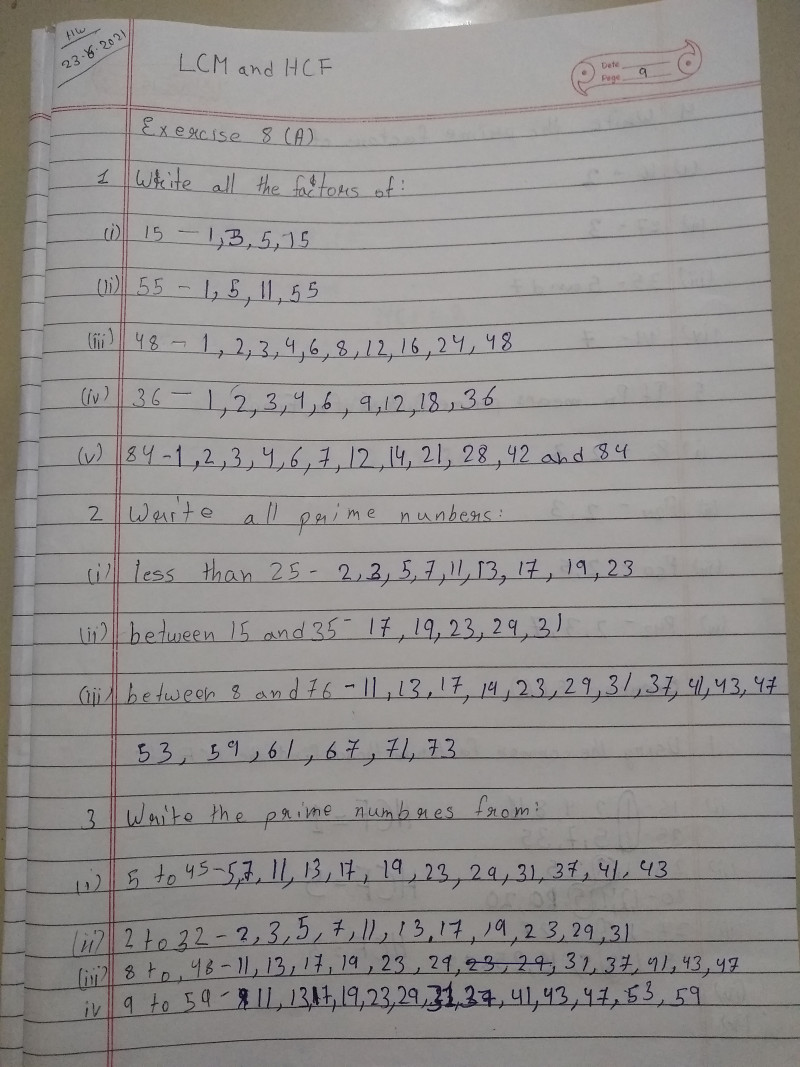 HW
23-6-2021
LCM and HCF
Date
Page 9
Exercise 8 (A)
1 Write all the factors of:
(i) 15 - 1, 3, 5, 15
(ii) 55 - 1, 5, 11, 55
(iii) 48 - 1, 2, 3, 4, 6, 8, 12, 16, 24, 48
(iv) 36 - 1, 2, 3, 4, 6, 9, 12, 18, 36
(v) 84 - 1, 2, 3, 4, 6, 7, 12, 14, 21, 28, 42 and 84
2 Write all prime nunbers:
(i) less than 25 - 2, 3, 5, 7, 11, 13, 17, 19, 23
(ii) between 15 and 35 - 17, 19, 23, 29, 31
(iii) between 8 and 76 - 11, 13, 17, 19, 23, 29, 31, 37, 41, 43, 47
53, 59, 61, 67, 71, 73
3 Write the prime numbres from:
(i) 5 to 45 - 5, 7, 11, 13, 17, 19, 23, 29, 31, 37, 41, 43
(ii) 2 to 32 - 2, 3, 5, 7, 11, 13, 17, 19, 23, 29, 31
(iii) 8 to, 48 - 11, 13, 17, 19, 23, 29, 23, 29, 31, 37, 41, 43, 47
iv 9 to 59 - 11, 13, 17, 19, 23, 29, 31, 37, 41, 43, 47, 53, 59